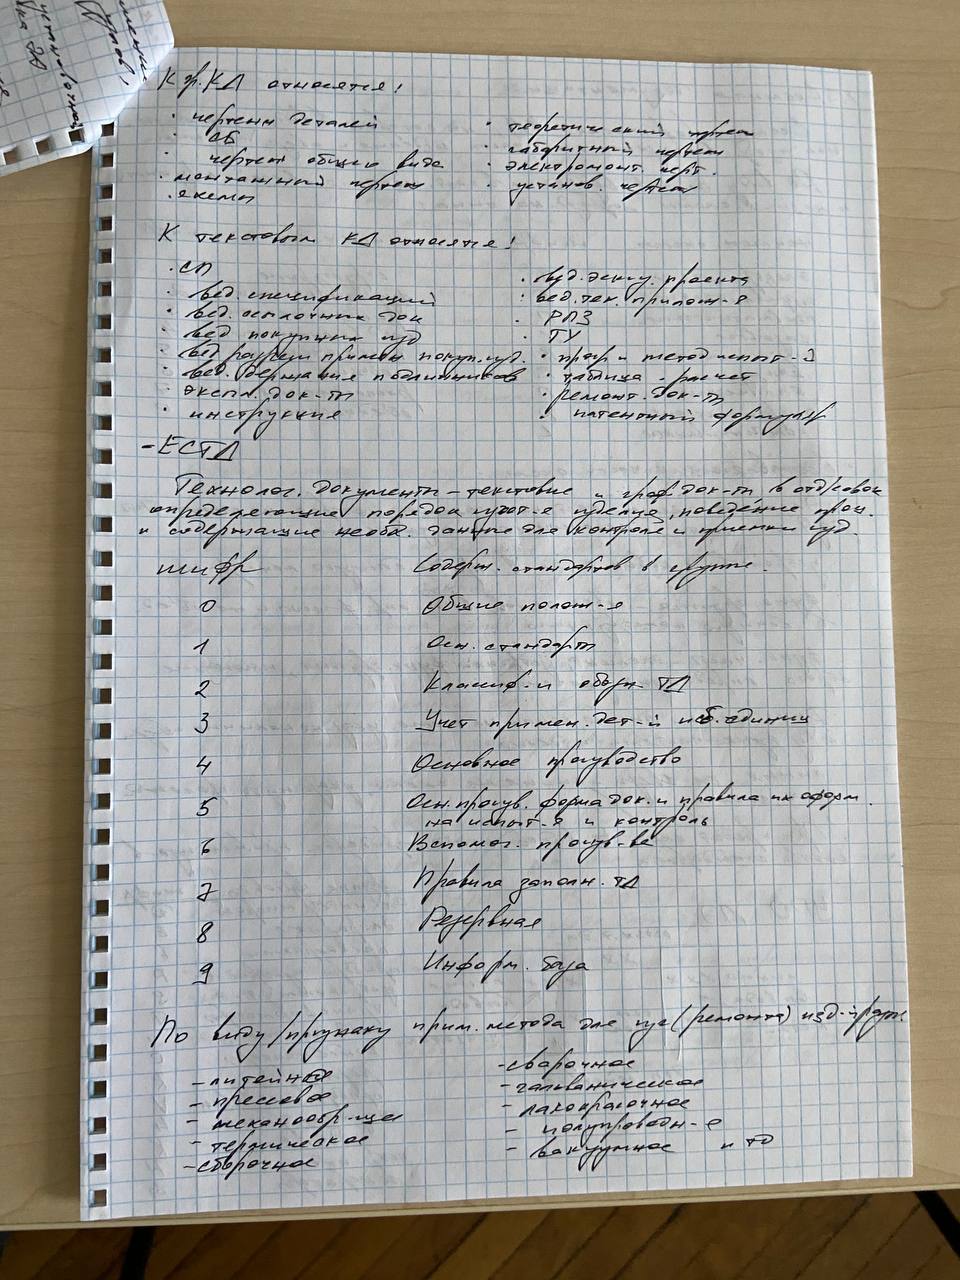 К гр. КД относятся:
· чертежи деталей
· СБ
· чертеж общего вида
· монтажный чертеж
· схемы
· теоретический чертеж
· габаритный чертеж
· электромонт. черт.
· установ. чертеж
К текстовым КД относятся:
· СП
· вед. спецификаций
· вед. ссылочных док
· вед покупных изд
· вед разреш примен покуп. изд.
· вед. держания подлинников
· экспл. док-ты
· инструкция
· вед. эскиз. проекта
· вед. тех. прилож-я
· РПЗ
· ТУ
· прогр и метод испыт-й
· таблица - расчет
· ремонт. док-ты
· патентный формуляр
- ЕСТД
Технолог. документы - текстовые и граф. док-ты, в отд/совок
определяющие порядок изгот-я изделия, поведение проц.
и содержащие необх. данные для контроля и приемки изд.
шифр Содерж. стандартов в группе.
0 Общие полож-я
1 Осн. стандарты
2 Классиф. и обозн. ТД
3 Учет примен. дет-й и сб. единиц
4 Основное производство
5 Осн. произв. форма док. и правила их оформ.
на испыт-я и контроль
6 Вспомог. произв-ве
7 Правила заполн. ТД
8 Резервная
9 Информ. база
По виду/признаку прим. метода для изг (ремонта) изд-й
- литейное
- прессовое
- механообр-ще
- термическое
- сборочное
- сварочное
- гальваническое
- лакокрасочное
- полупроводн-е
- вакуумное и тд